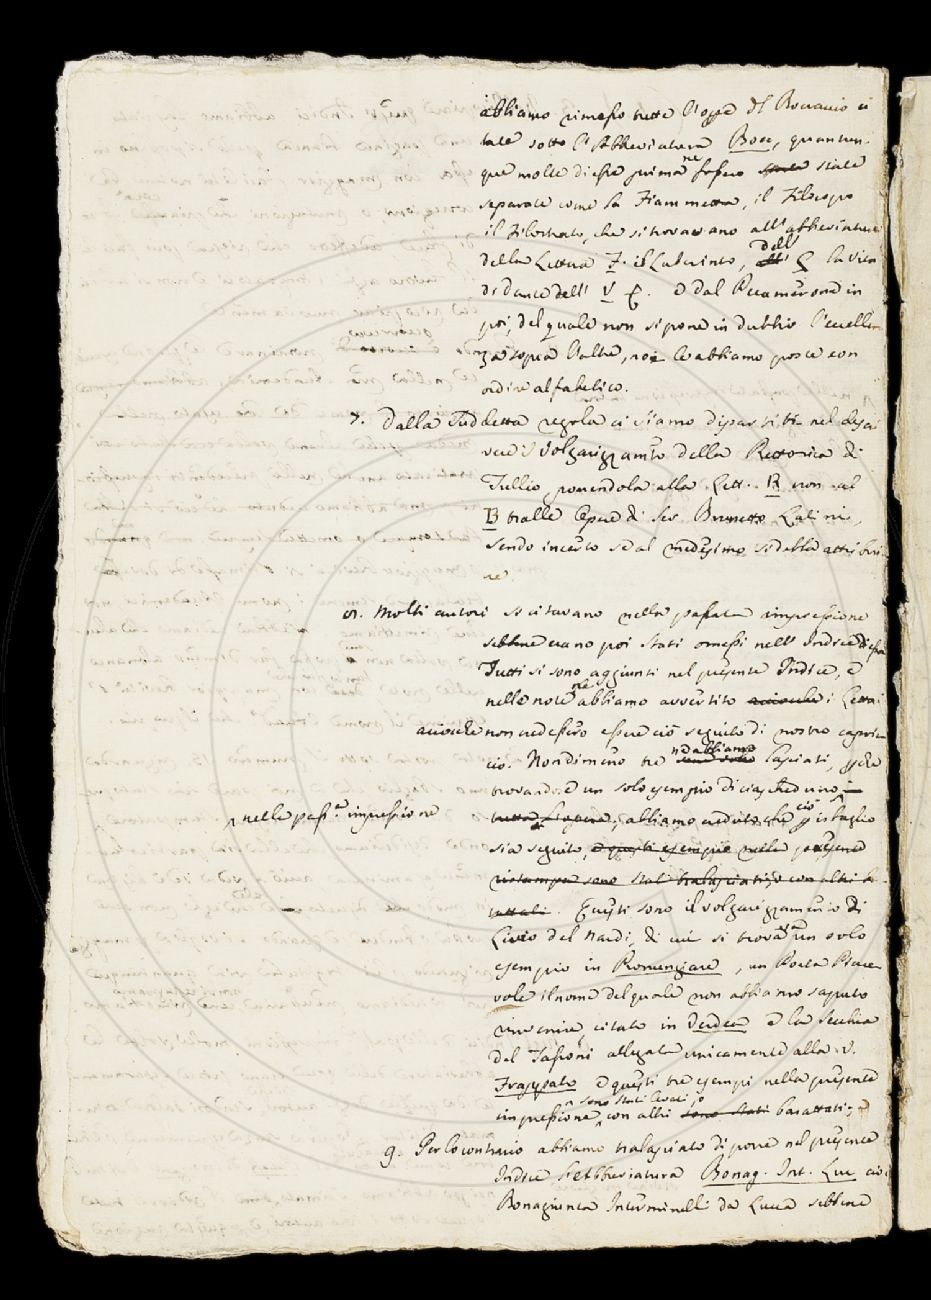 abbiamo rimesso tutte l'opre del Boccaccio ci
tate sotto l'Abbreviatura Bocc, quantun-
que molte di esse prima ne fossero state
separate come la Fiammetta, il Filocopo
il Filostrato, che si trovavano all'abbreviatura
della Lettera F. il Laberinto, dell' L la Vita
di Dante dell' V e D dal Decamerone in
poi, del quale non si pone in dubbio l'eccellen
za sopra l'altre, noi le abbiamo poste con
ordine alfabetico.
7. Dalla suddetta regola ci siamo dipartiti nel descri
vere il Volgarizzamto della Rettorica di
Tullio ponendola alla Lett. R non al
B tralle Opere di Ser Brunetto Latini,
sendo incerto se al medesimo si debba attribui-
re.
8. Molti autori si citavano nella passata impressione
sebbene erano poi stati omessi nell' Indice di essa
Tutti si sono aggiunti nel presente Indice, e
nelle note ne abbiamo avvertito acciocchè i Lettori
acciocchè non credessero essere ciò seguito di nostro capric-
cio. Nondimeno tre ne abbiamo lasciati, perche
trovandone un solo esempio di ciascheduno in
nelle passa. impressione
tutta l'opera, abbiamo creduto che ciò per isbaglio
sia seguito, e questi esempi nella presente
ristampa sono stati tralasciati, o con altri ba
rattati. Questi sono il volgarizzamento di
Livio del Nardi, di cui si trovava un solo
esempio in Romoreggiare, un Poeta Piace-
vole il nome del quale non abbiamo saputo
rinvenire citato in e la Secchia
del Tassoni allegata unicamente alla v.
Frappato e questi tre esempi nella presente
impressione, sono stati levati, o con altri sono stati barattati;
9. Per lo contrario abbiamo tralasciato di porre nel presente
Indice l'Abbreviatura Bonag. Int. Luc cioè
Bonagiunta Interminelli da Lucca sebbene